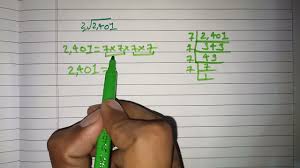 2√2,401
2,401 = 7 × 7 × 7 × 7
2,401 =
7 | 2,401
7 | 343
7 | 49
7 | 7
1